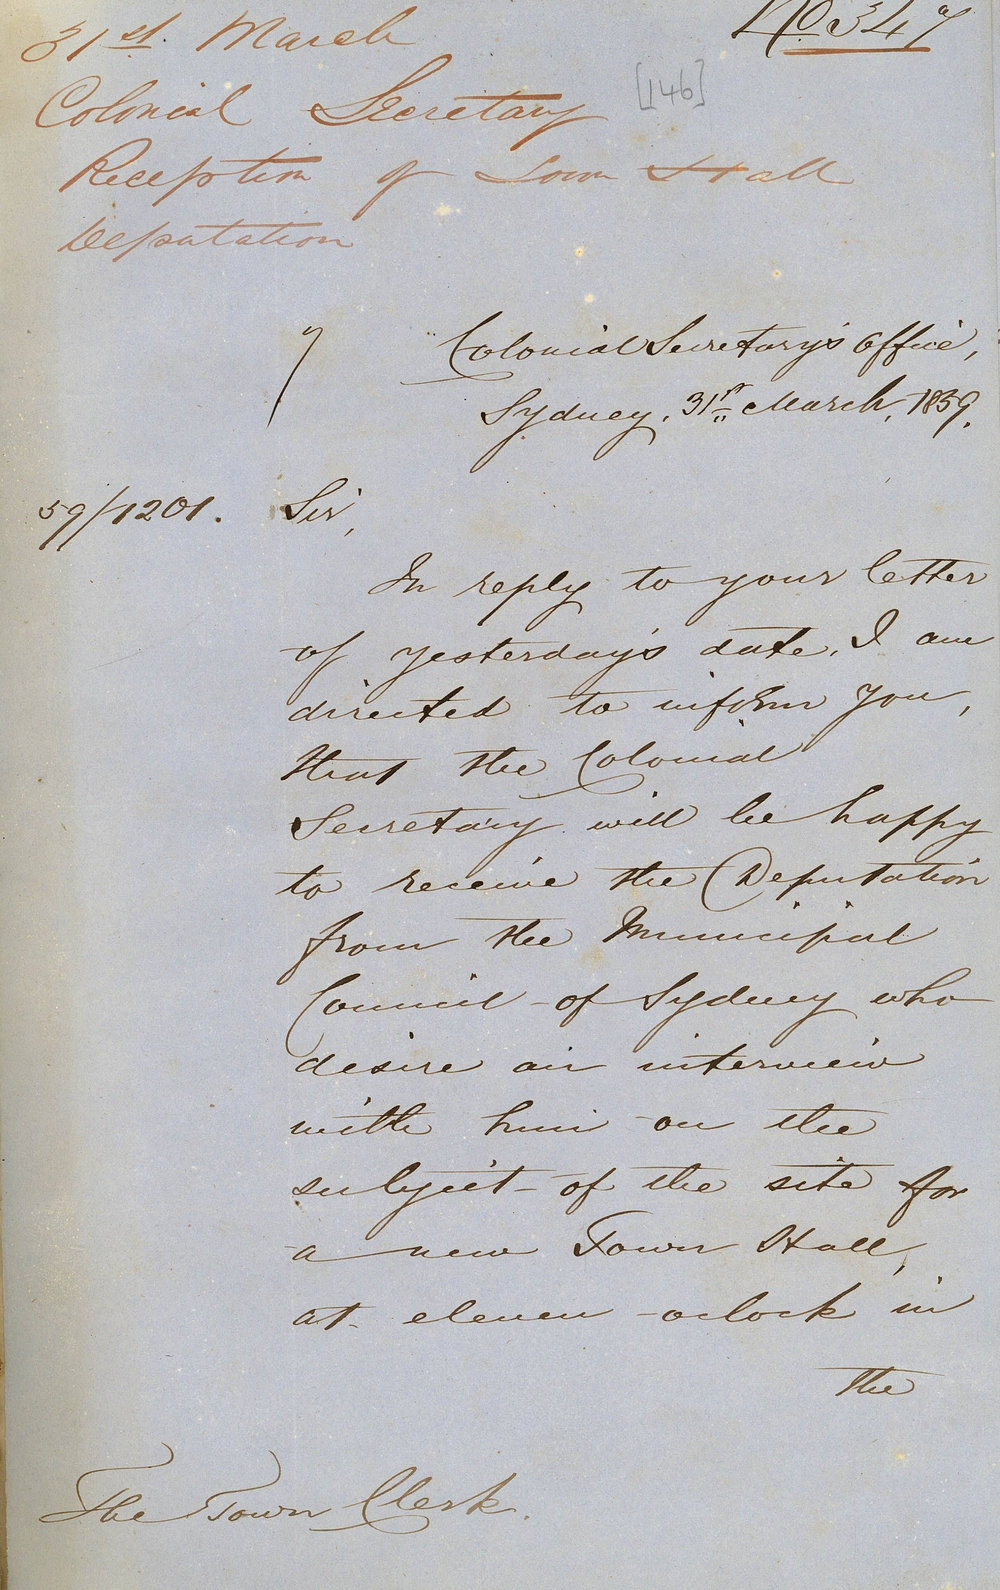 31st. March
No. 347
[146]
Colonial Secretary
Reception of Town Hall
Deputation
Colonial Secretary's Office,
Sydney, 31st March, 1859.
59/1201.
Sir,
In reply to your letter
of yesterday's date, I am
directed to inform you,
that the Colonial
Secretary will be happy
to receive the Deputation
from the Municipal
Council of Sydney who
desire an interview
with him on the
subject of the site for
a new Town Hall,
at eleven oclock in
the
The Town Clerk.